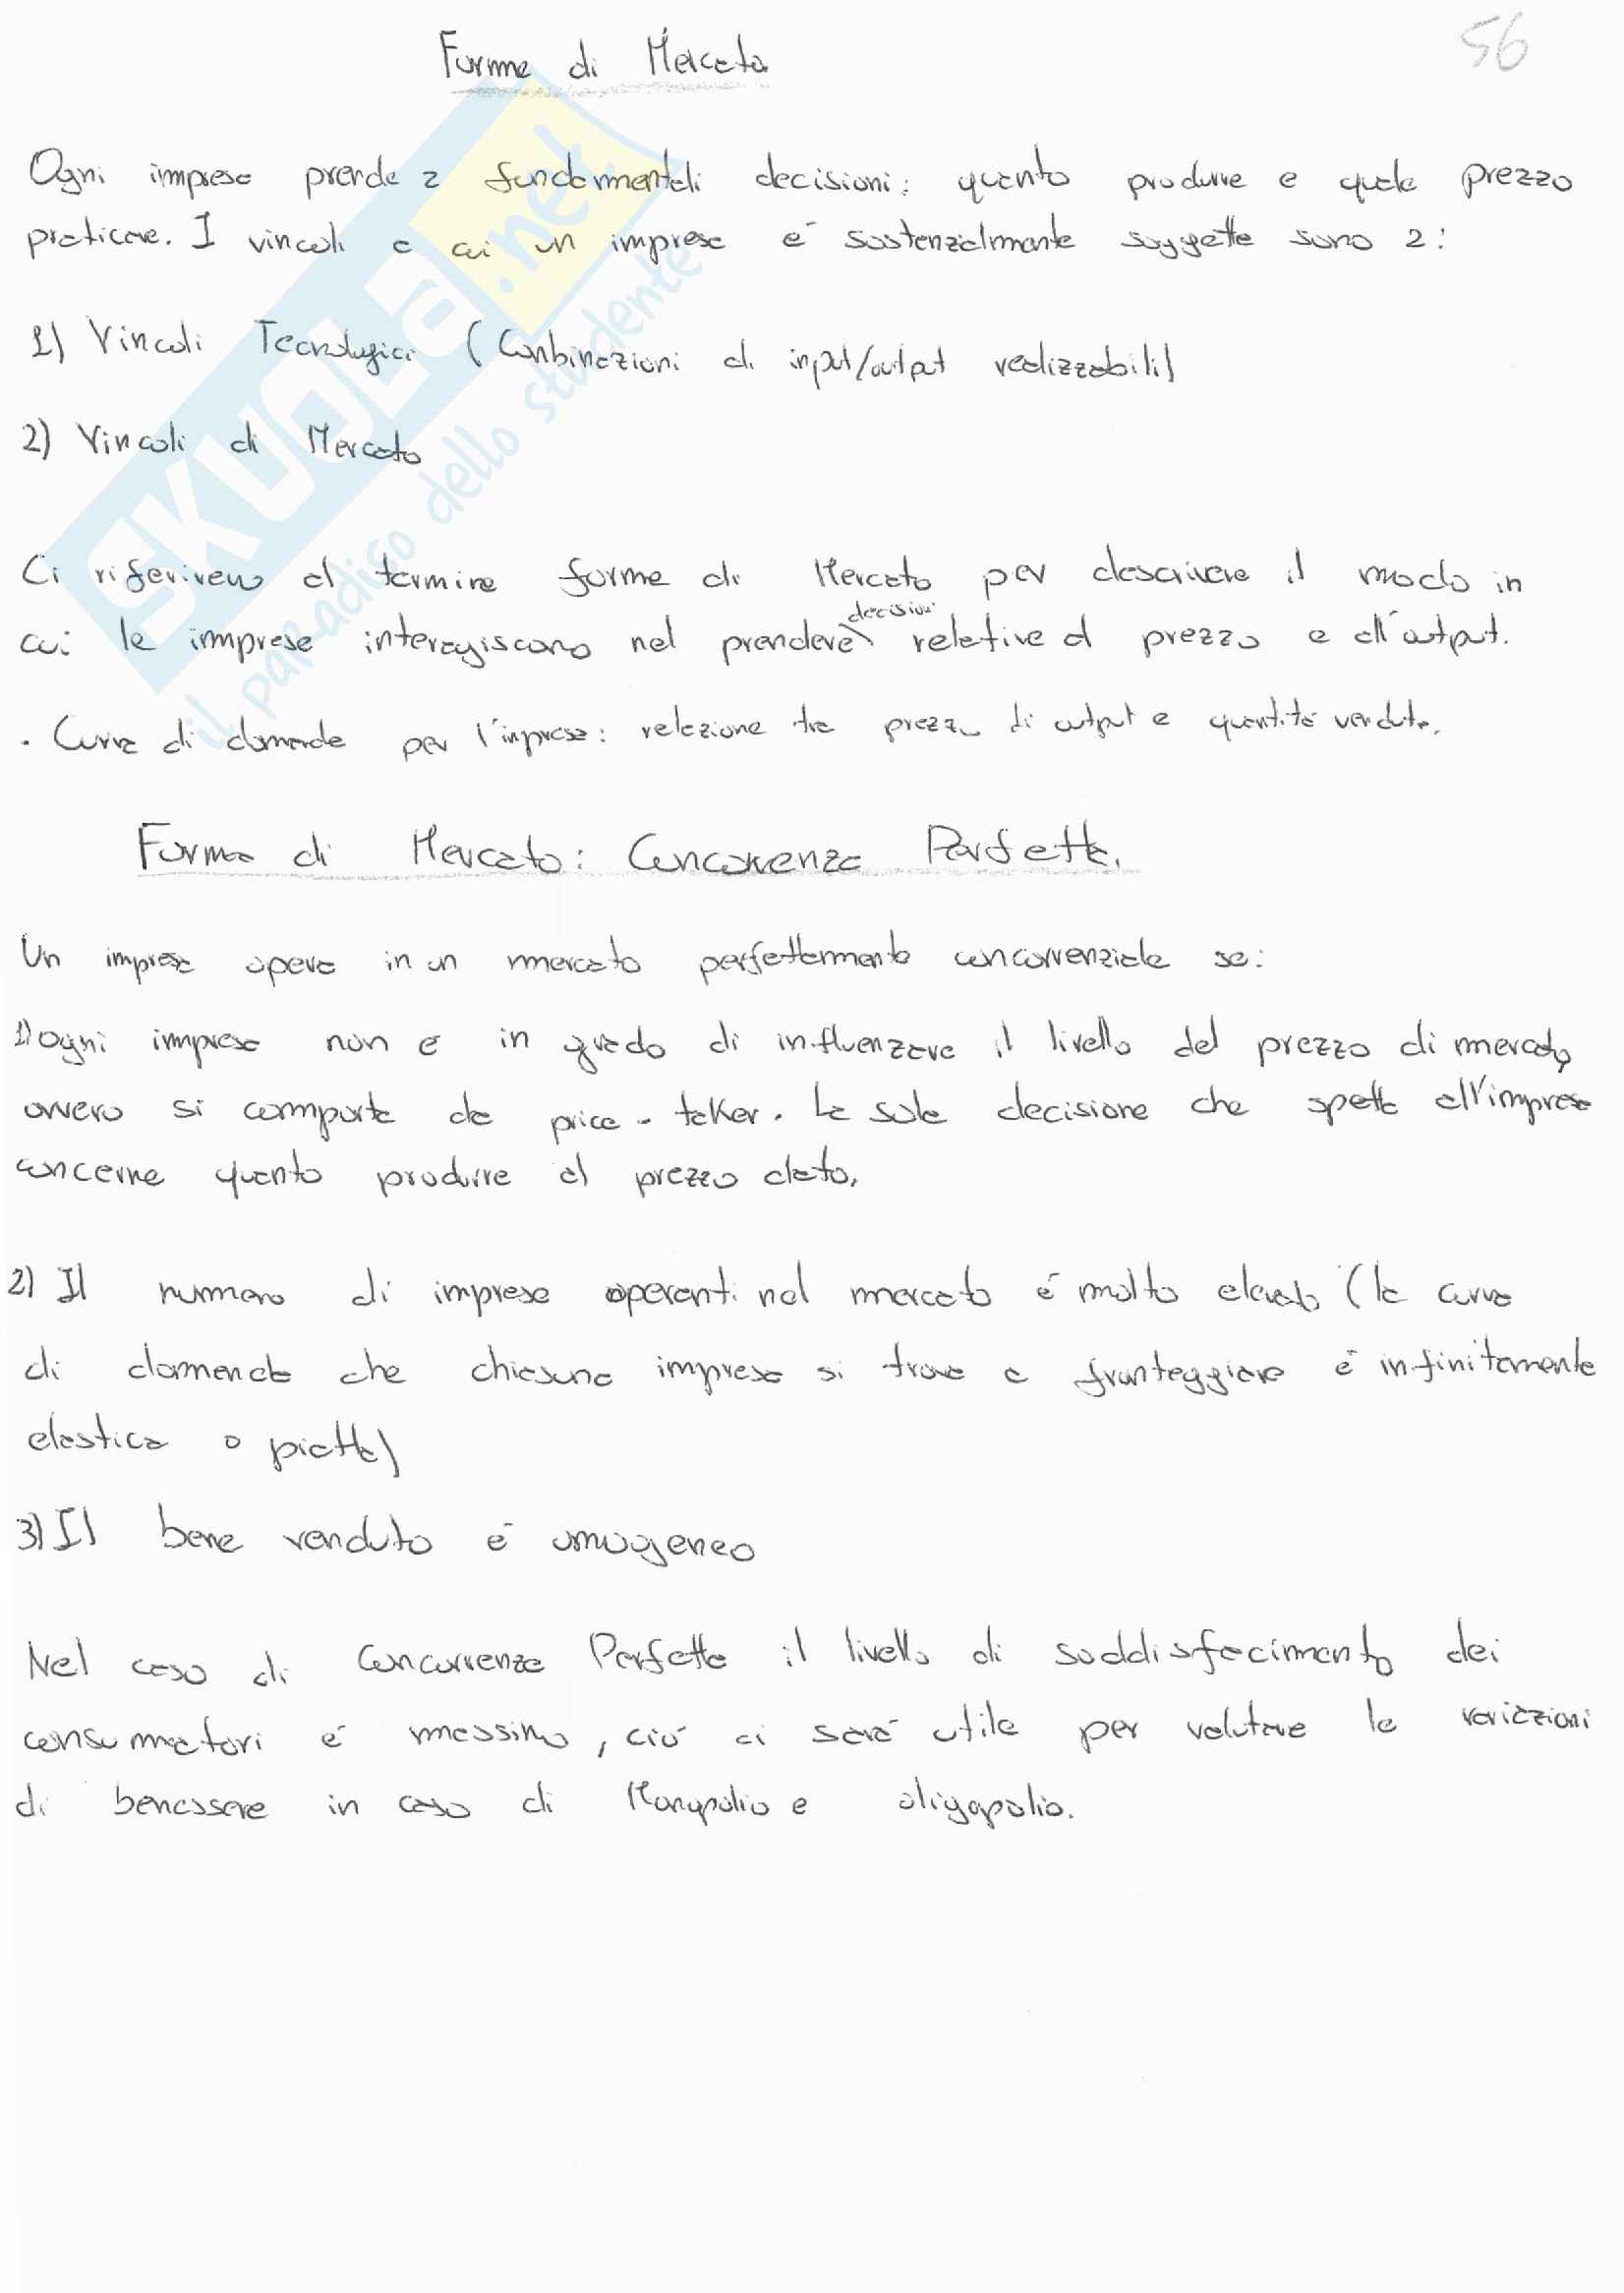 Forme di Mercato
56
Ogni impresa prende 2 fondamentali decisioni: quanto produrre e quale prezzo
praticare. I vincoli a cui un impresa è sostanzialmente soggetta sono 2:
1) Vincoli Tecnologici (Combinazioni di input/output realizzabili)
2) Vincoli di Mercato
Ci riferiremo al termine forme di Mercato per descrivere il modo in
cui le imprese interagiscono nel prendere decisioni relative al prezzo e all'output.
. Curva di domanda per l'impresa: relazione tra prezzo di output e quantità venduta.
Forma di Mercato: Concorrenza Perfetta.
Un impresa opera in un mercato perfettamente concorrenziale se:
1) ogni impresa non è in grado di influenzare il livello del prezzo di mercato,
ovvero si comporta da price-taker. La sola decisione che spetta all'impresa
concerne quanto produrre al prezzo dato.
2) Il numero di imprese operanti nel mercato è molto elevato (la curva
di domanda che ciascuna impresa si trova a fronteggiare è infinitamente
elastica o piatta)
3) Il bene venduto è omogeneo
Nel caso di Concorrenza Perfetta il livello di soddisfacimento dei
consumatori è massimo, ciò ci sarà utile per valutare le variazioni
di benessere in caso di Monopolio e oligopolio.
SKUOLA.net
il paradiso dello studente